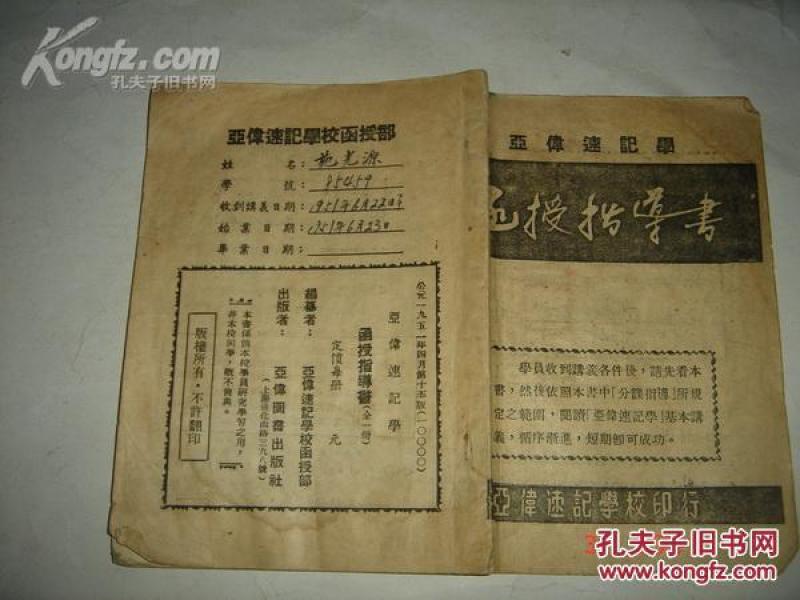 Kongfz.com
孔夫子旧书网
亞偉速記學校函授部
姓名：施光源
學號：95459
收到講義日期：1951年6月22日下
始業日期：1951年6月23日
畢業日期：
公元一九五一年四月第十五版（一〇〇〇〇）
亞偉速記學
函授指導書（全一冊）
定價每冊 元
編纂者：亞偉速記學校函授部
出版者：亞偉圖書出版社
本書係供本校學員研究學習之用，
非本校同學，概不售與。
版權所有・不許翻印
亞偉速記學
函授指導書
學員收到講義各件後，請先看本
書，然後依照本書中「分課指導」所規
定之範圍，閱讀「亞偉速記學」基本講
義，循序漸進，短期卽可成功。
亞偉速記學校印行
孔夫子旧书网
www.kongfz.com